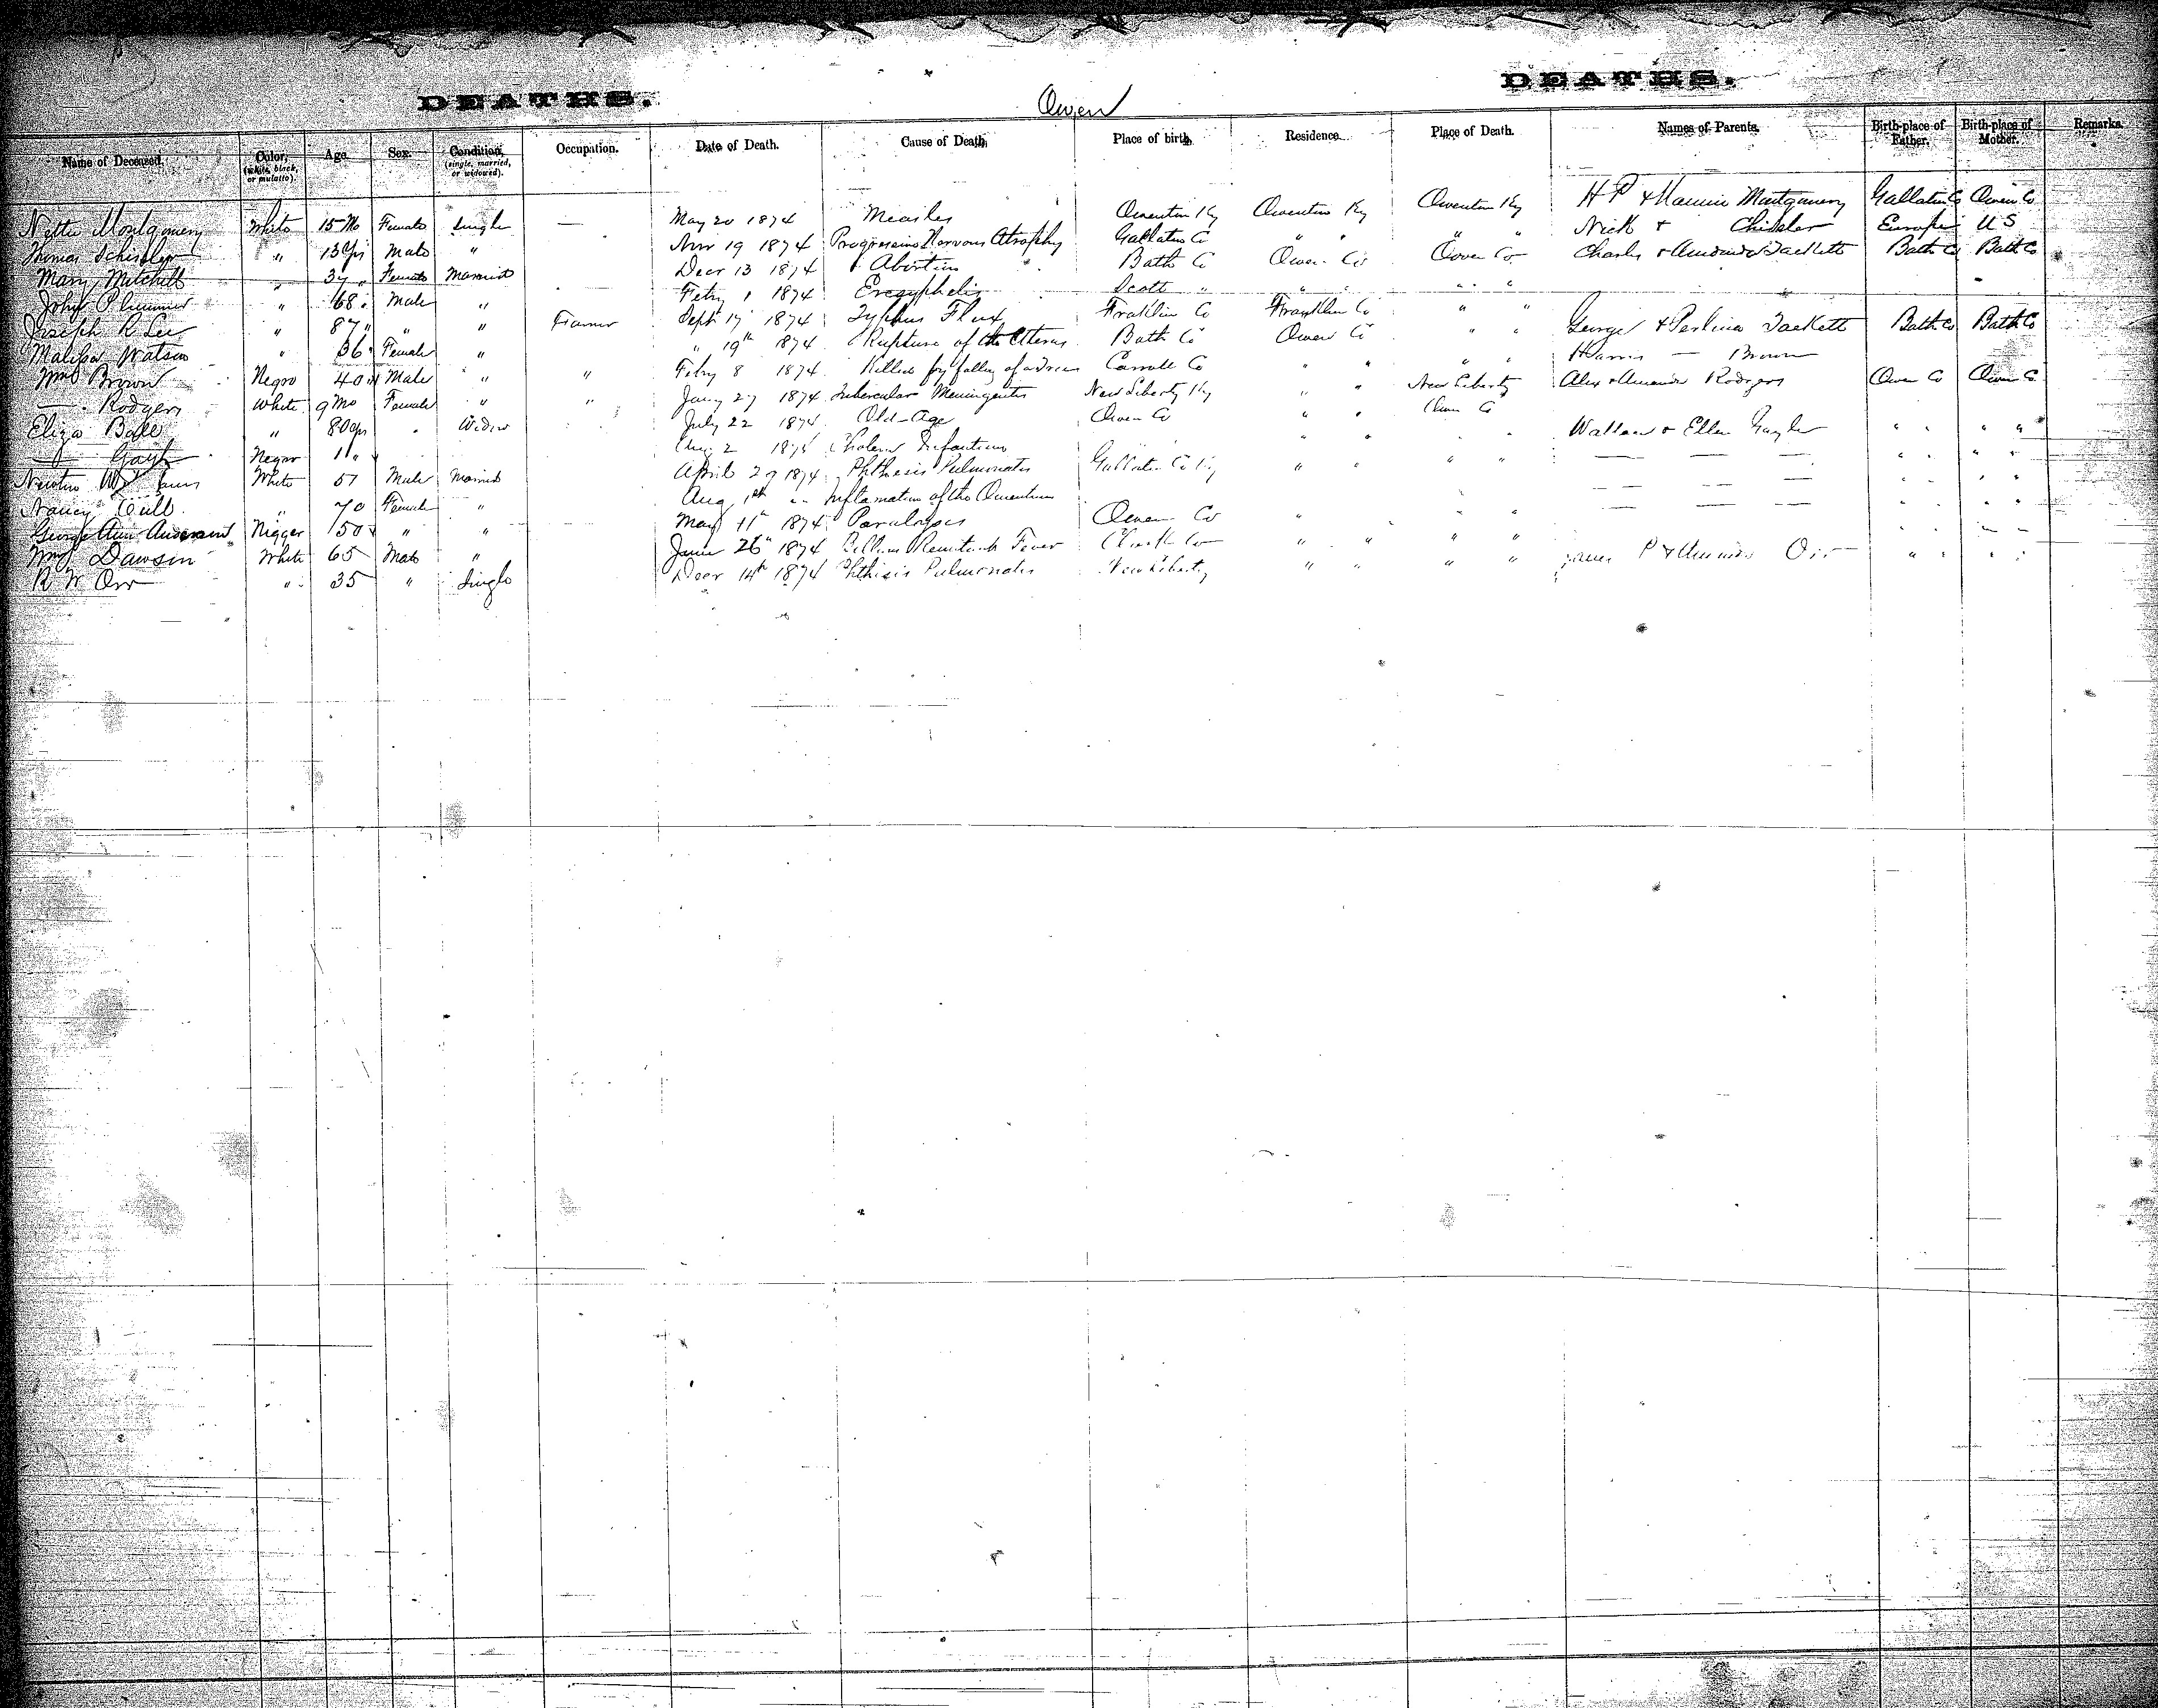 DEATHS. Owen DEATHS.
Name of Deceased. Color, (white, black, or mulatto). Age. Sex. Condition, (single, married, or widowed). Occupation. Date of Death. Cause of Death. Place of birth. Residence. Place of Death. Names of Parents. Birth-place of Father. Birth-place of Mother. Remarks.
Nettie Montgomery White 15 Mo Female Single — May 20 1874 Measles Owenton Ky Owenton Ky Owenton Ky H P & Mamie Montgomery Gallatin Co Owen Co
Thomas Schissler " 13 yrs Male " Nov 19 1874 Progressive Nervous Atrophy Gallatin Co " " " " Nick & Chissler Europe U S
Mary Mitchell " 37 " Female Married Decr 13 1874 Abortion Bath Co Owen Co Owen Co Charles & Amanda Tackett Bath Co Bath Co
John Plummer " 68 " Male " Feby 1 1874 Eresyphelis Scott " " " " "
Joseph R Lee " 87 " " " Farmer Sept 17 1874 Typhus Flux Franklin Co Franklin Co " "
Malissa Watson " 36 " Female " " 19th 1874 Rupture of the Uterus Bath Co Owen Co " " George & Perlina Tackett Bath Co Bath Co
Wm Brown Negro 40 " Male " " Feby 8 1874 Killed by falling of a tree Carroll Co " " " " Harris — Brown
— Rodgers White 9 Mo Female " " Jany 27 1874 Tubercular Meningentis New Liberty Ky " " New Liberty Alex & Amanda Rodgers Owen Co Owen Co
Eliza Ball " 80 yrs " Widow July 22 1874 Old-Age Owen Co " " Owen Co
Gayle Negro 11 " Aug 2 Cholera Infantum " " " " Wallace & Ellen Gayle " " " "
Newton White 57 Male Married April 29 1874 Phthesis Pulmonates Gallatin Co Ky " " " " — — — " " " "
Nancy Cull " 70 Female " Aug 1st " Inflamation of the Omentum — — —
George Ann Anderson Nigger 50 " " " May 11th 1874 Paralysis Owen Co " " " — — —
Wm Dawson White 65 Male " June 26th 1874 Billious Remittent Fever Co " " " "
R. W. Orr " 35 " Single Decr 14th 1874 Phthisis Pulmonates New Liberty " " " " James P & Orr " " " "